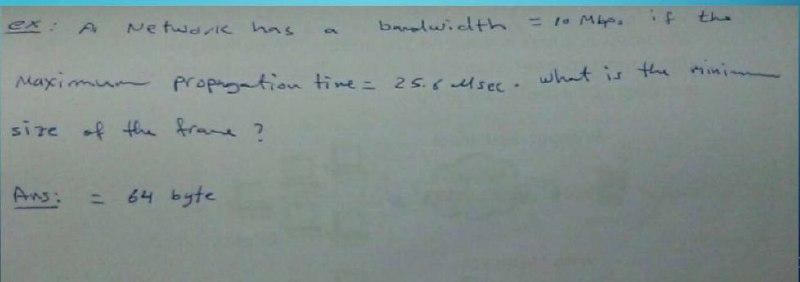 ex: A Network has a bandwidth = 10 Mbps if the
Maximum propagation time = 25.6 Msec. what is the minimum
size of the frame ?
Ans: = 64 byte